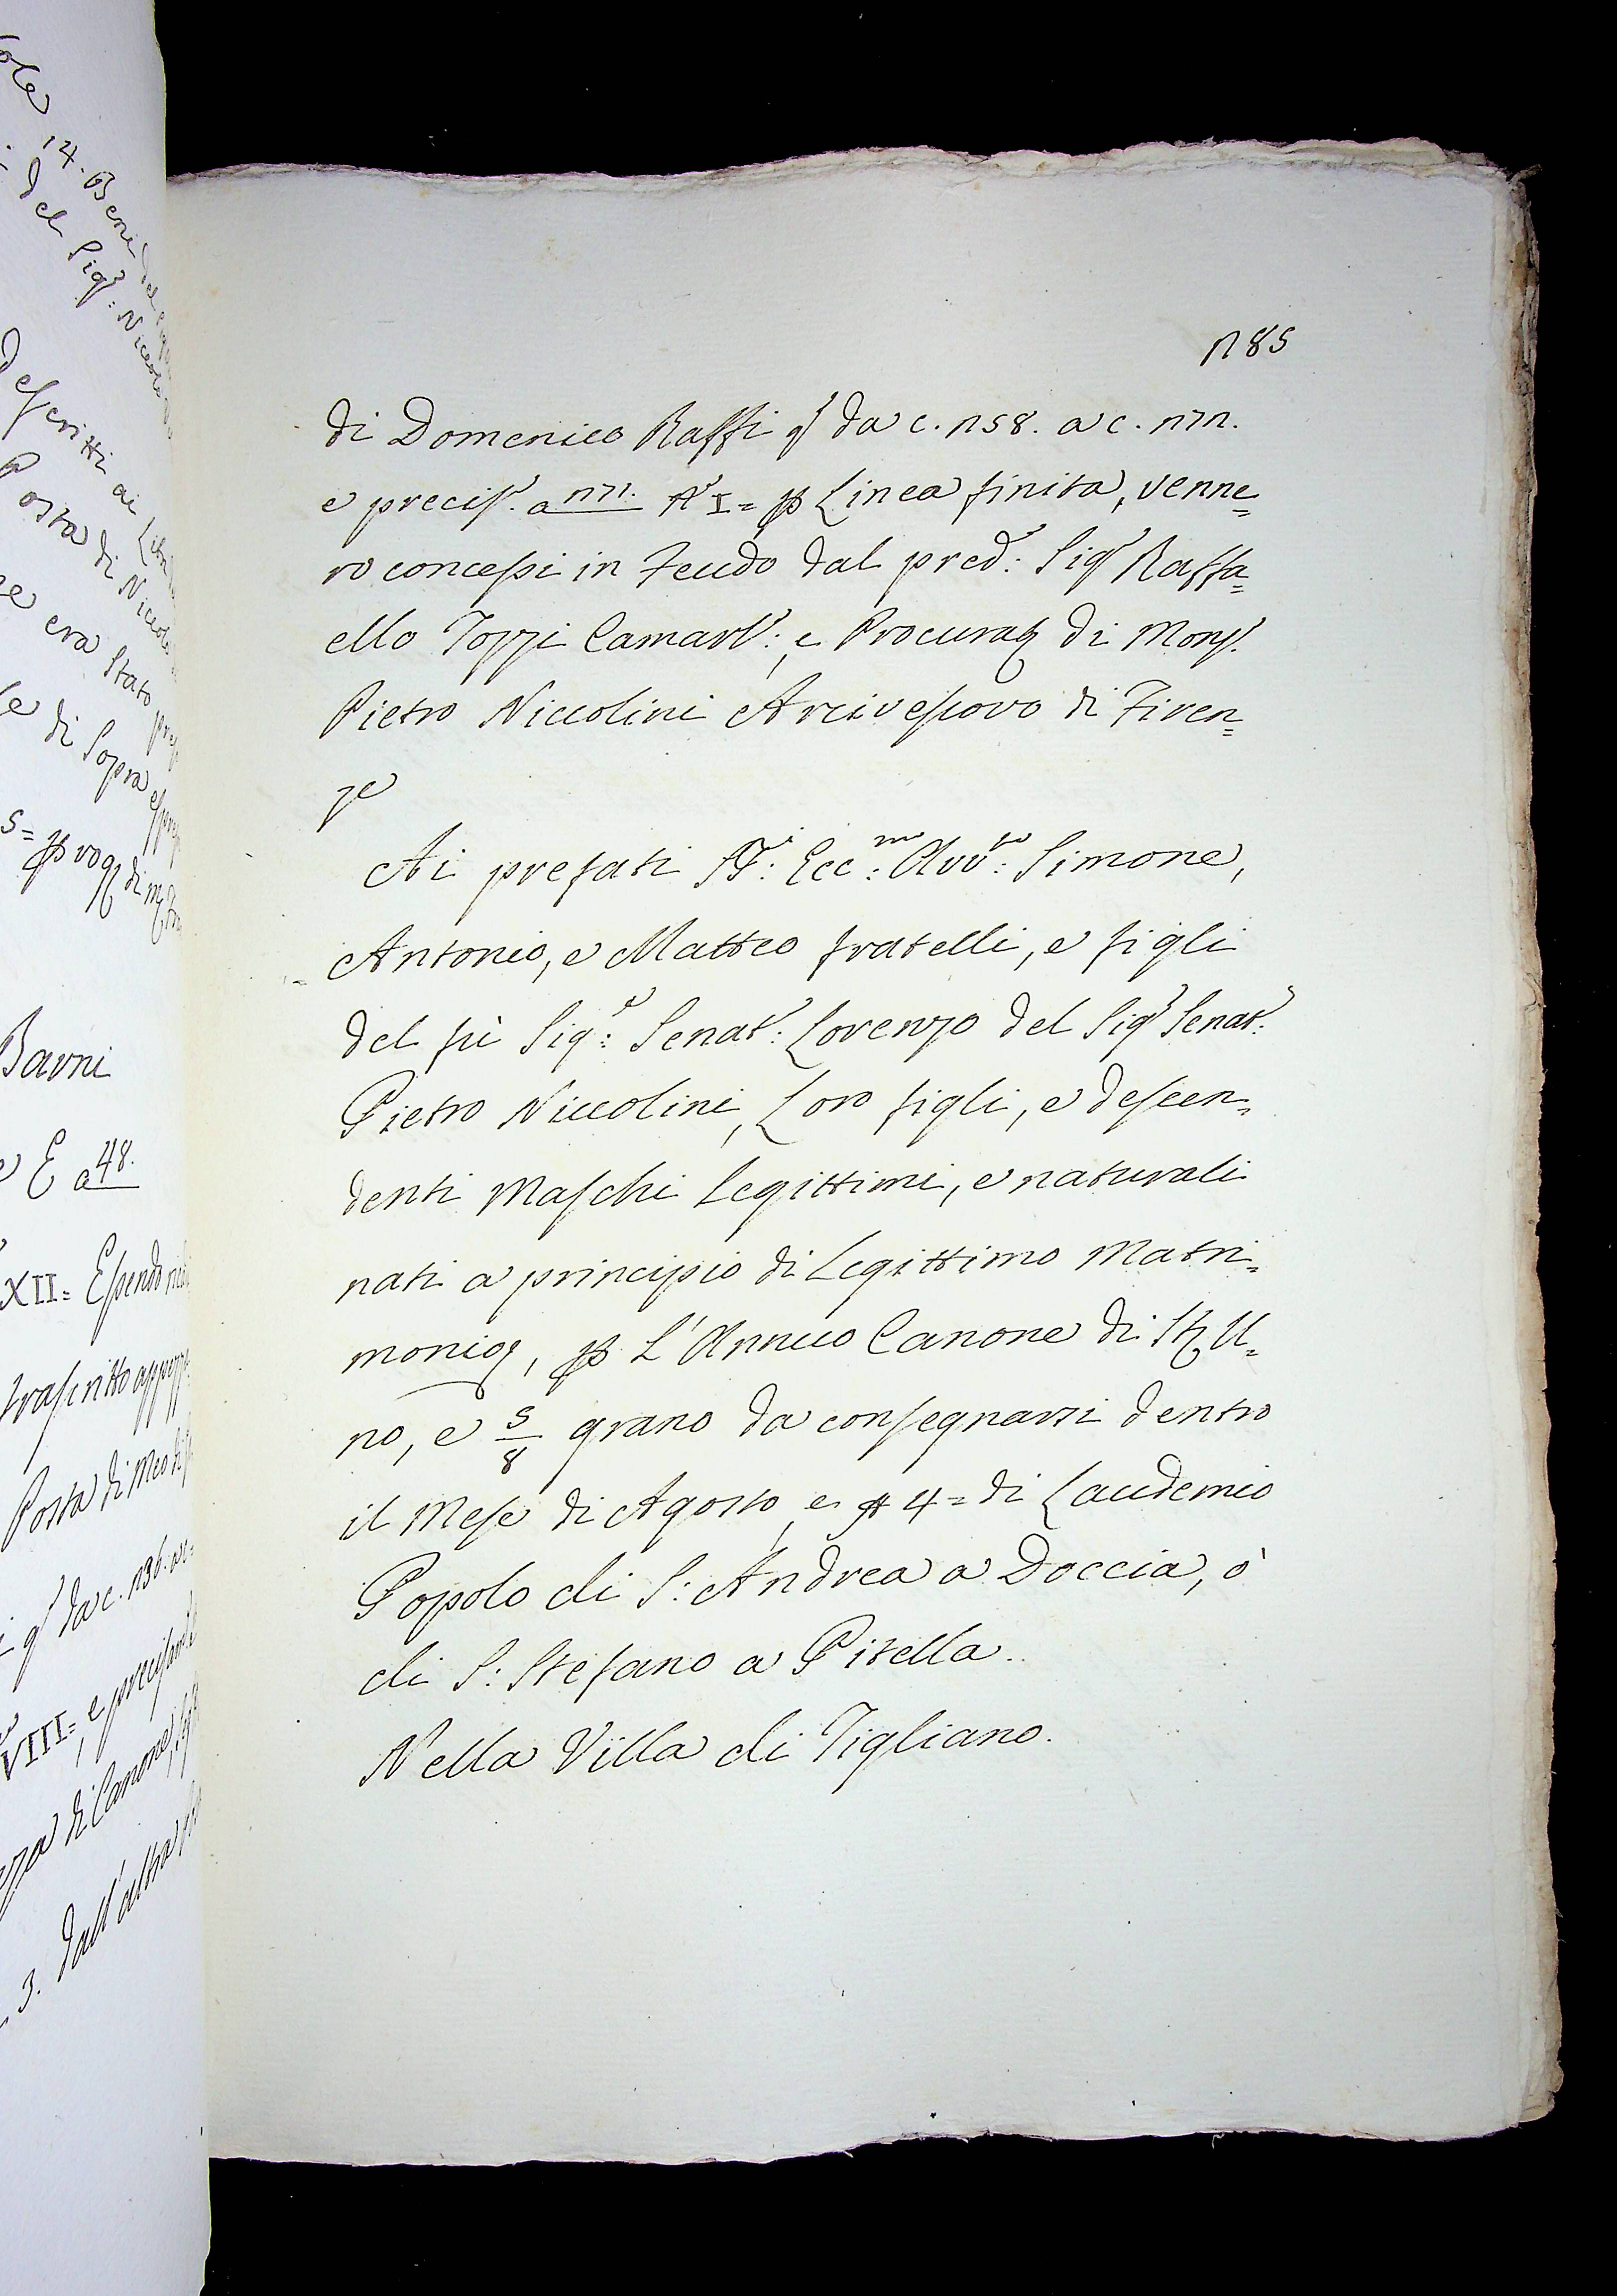 185
di Domenico Raffi qf da c. 158. a c. 171.
e precis.e a 171. No I= p Linea finita, venne=
ro concessi in Feudo dal pred.: Sigr Raffa=
ello Tozzi Camarl.: e Procurat di Mons.
Pietro Niccolini Arcivescovo di Firen=
ze
Ai prefati SS.ri: Ecc.mo: Avv.to: Simone,
Antonio, e Matteo fratelli, e figli
del fù Sig.r: Senat.: Lorenzo del Sigr Senat.:
Pietro Niccolini, Loro figli, e descen=
denti Maschi Legittimi, e naturali
nati a principio di Legittimo Matri=
monio, p L'Annuo Canone di St U=
no, e 5/8 grano da consegnarsi dentro
il Mese di Agosto, e 4= di Laudemio
Popolo di S: Andrea a Doccia, ò
di S: Stefano a Pitella.
Nella Villa di Tigliano.
14. Beni del
del Sigr: Niccolò
Descritti ai Libri
Posta di Niccolò
era Stato
di Sopra
Barni
E a 48.
XII= Essendo
trascritto
Posta di Meo di
qf da c. 136. a c=
VIII=, e precisam
di Canone,
3. dall'altra